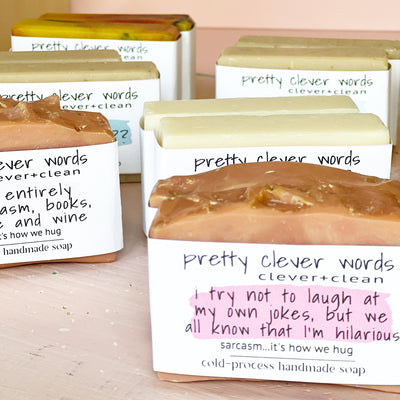 pretty clever words
pretty clever words
clever+clean
pretty clever words
clever+clean
??
pretty clever words
clever words
clever+clean
entirely
books,
and wine
it's how we hug
handmade soap
pretty clever words
clever+clean
i try not to laugh at
my own jokes, but we
all know that I'm hilarious
sarcasm...it's how we hug
cold-process handmade soap